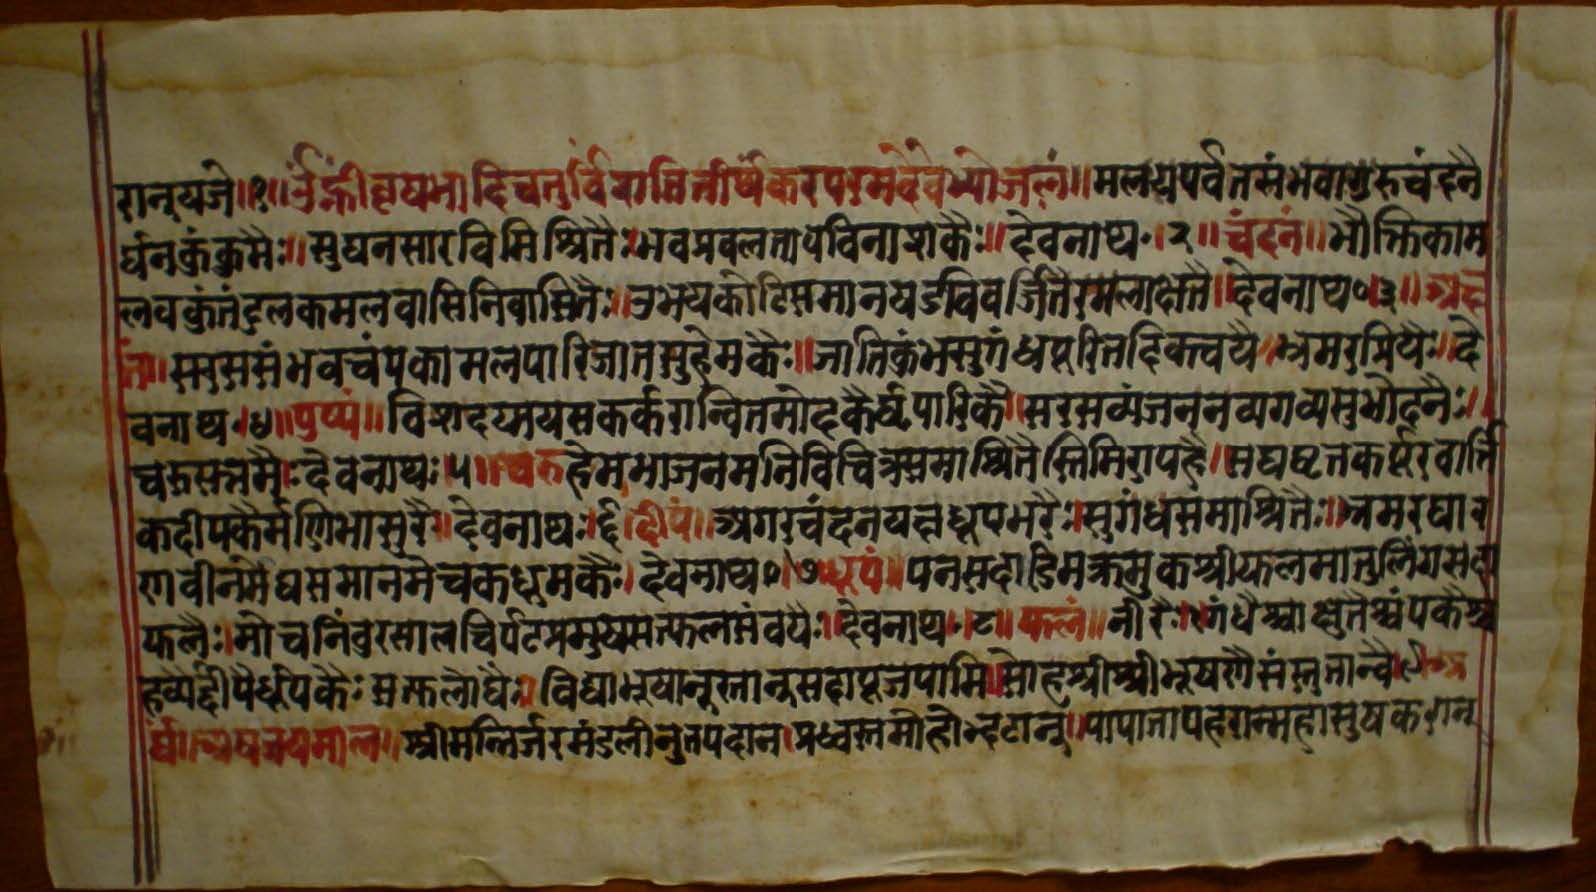 रान्यजे॥१॥ॐह्रीवृषभादिचतुर्विंशतितीर्थंकरपरमदेवेभ्योजलं॥मलयपर्वतसंभवागुरुचंदनै
र्घनकुंकुमैः॥सुघनसारविमिश्रितैःभवप्रवलतापविनाशकैः॥देवनाथ॰।२॥चंदनं॥मौक्तिकाम
लवकुंतंदुलकमलवासिनिवासितैः॥उभयकोटिसमानषडविवर्जितैरमलाक्षतै॥देवनाथ०।३॥अक्ष
तं॥सरससंभवचंपकामलपारिजातसुहेमकैः॥जातिकुंभसुगंधपूरितदिक्चयै॥भ्रमरप्रियैः॥दे
वनाथ।४॥पुष्पं॥विशदपायसकर्करान्वितमोदकैर्घृपारिकै॥सरसव्यंजननव्यगव्यसुभौदनैः॥
चरुसत्तमैःदेवनाथः।५॥चरुहेमभाजनमनिविचित्रसमाश्रितैस्तिमिरापहै।सघघृतकर्पूरवार्त्ति
कदीपकैर्मणिभासुरै॥देवनाथः।६।दीपं॥अगरचंदनयत्नधूपभरैः।सुगंधसमाश्रितैः॥भ्रमरघार
रावीनमेघसमानमेचकधूमकैः।देवनाथ०।७।धूपं॥पनसदाडिमक्रमुकश्रीफलमातुलिंगसदा
फलैः॥मोचनिंवुरसालचिर्पटप्रमुखसत्फलसंचयैः॥देवनाथ।८॥फलं॥नीरैःगंधैश्चाक्षतैश्चंपकैश्च
हव्यैर्दीपैर्धूपकैःसत्फलौघैः॥विद्याभूषानूत्नान्सदापूजयामि॥सोहंश्रीश्रीभूषणैसंस्तुतान्वै।९।अ
र्घं॥अथजयमाल॥श्रीमन्निर्जरमंडलीनुतपदान।प्रध्वस्तमोहोन्द्रटान्॥पापातापहरान्महासुखकरान्